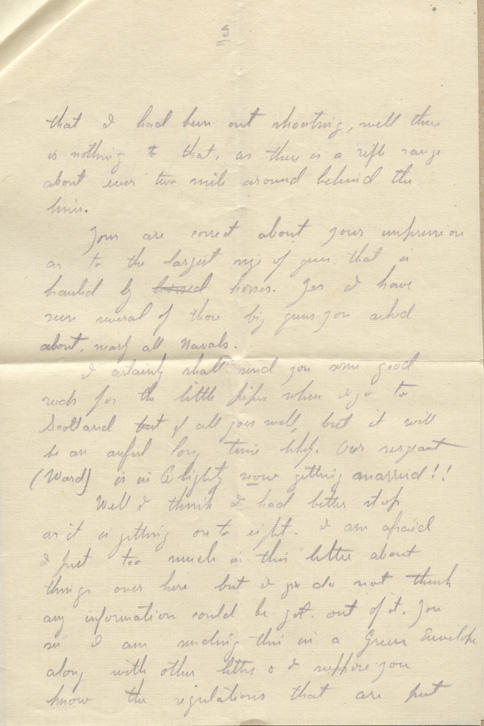 5
that I had been out shooting, well there
is nothing to that, as there is a rifle range
about ever two mile around behind the
lines.
Your are correct about your impression
as to the largest size of guns that is
hauled by horses. Yes I have
seen several of those big guns you asked
about, mostly all Navals.
I certainly shall send you some good
for the little when I go to
Scotland if all goes well, but it will
be an awful long time. Our sergeant
(Ward) is in Blighty now getting married!!
Well I think I had better stop
as it is getting on to eight. I am afraid
I put too much in this letter about
things over here but I do not think
any information could be got out of it. You
see I am sending this in a Green Envelope
along with other letters & I suppose you
know the regulations that are put